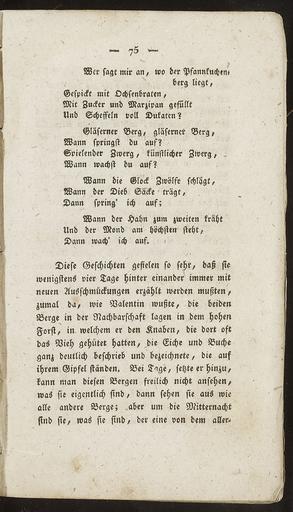 — 75 —
Wer sagt mir an, wo der Pfannkuchen-
berg liegt,
Gespickt mit Ochsenbraten,
Mit Zucker und Marzipan gefüllt
Und Scheffeln voll Dukaten?
Gläserner Berg, gläserner Berg,
Wann springst du auf?
Spielender Zwerg, künstlicher Zwerg,
Wann wachst du auf?
Wann die Glock Zwölfe schlägt,
Wann der Dieb Säcke trägt,
Dann spring' ich auf;
Wann der Hahn zum zweiten kräht
Und der Mond am höchsten steht,
Dann wach' ich auf.
Diese Geschichten gefielen so sehr, daß sie
wenigstens vier Tage hinter einander immer mit
neuen Ausschmückungen erzählt werden mußten,
zumal da, wie Valentin wußte, die beiden
Berge in der Nachbarschaft lagen in dem hohen
Forst, in welchem er den Knaben, die dort oft
das Vieh gehütet hatten, die Eiche und Buche
ganz deutlich beschrieb und bezeichnete, die auf
ihrem Gipfel ständen. Bei Tage, setzte er hinzu,
kann man diesen Bergen freilich nicht ansehen,
was sie eigentlich sind, dann sehen sie aus wie
alle andere Berge; aber um die Mitternacht
sind sie, was sie sind, der eine von dem aller-